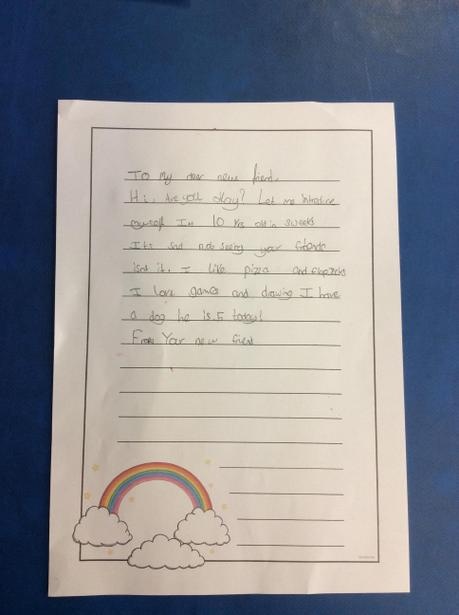 To my dear new friend,
Hi, Are you okay? Let me introduce
myself Im 10 yrs old in 5weeks
Its sad not seeing your friends
isnt it. I like pizza and flapjacks
I love games and drawing I have
a dog he is 5 today!
From Your new friend